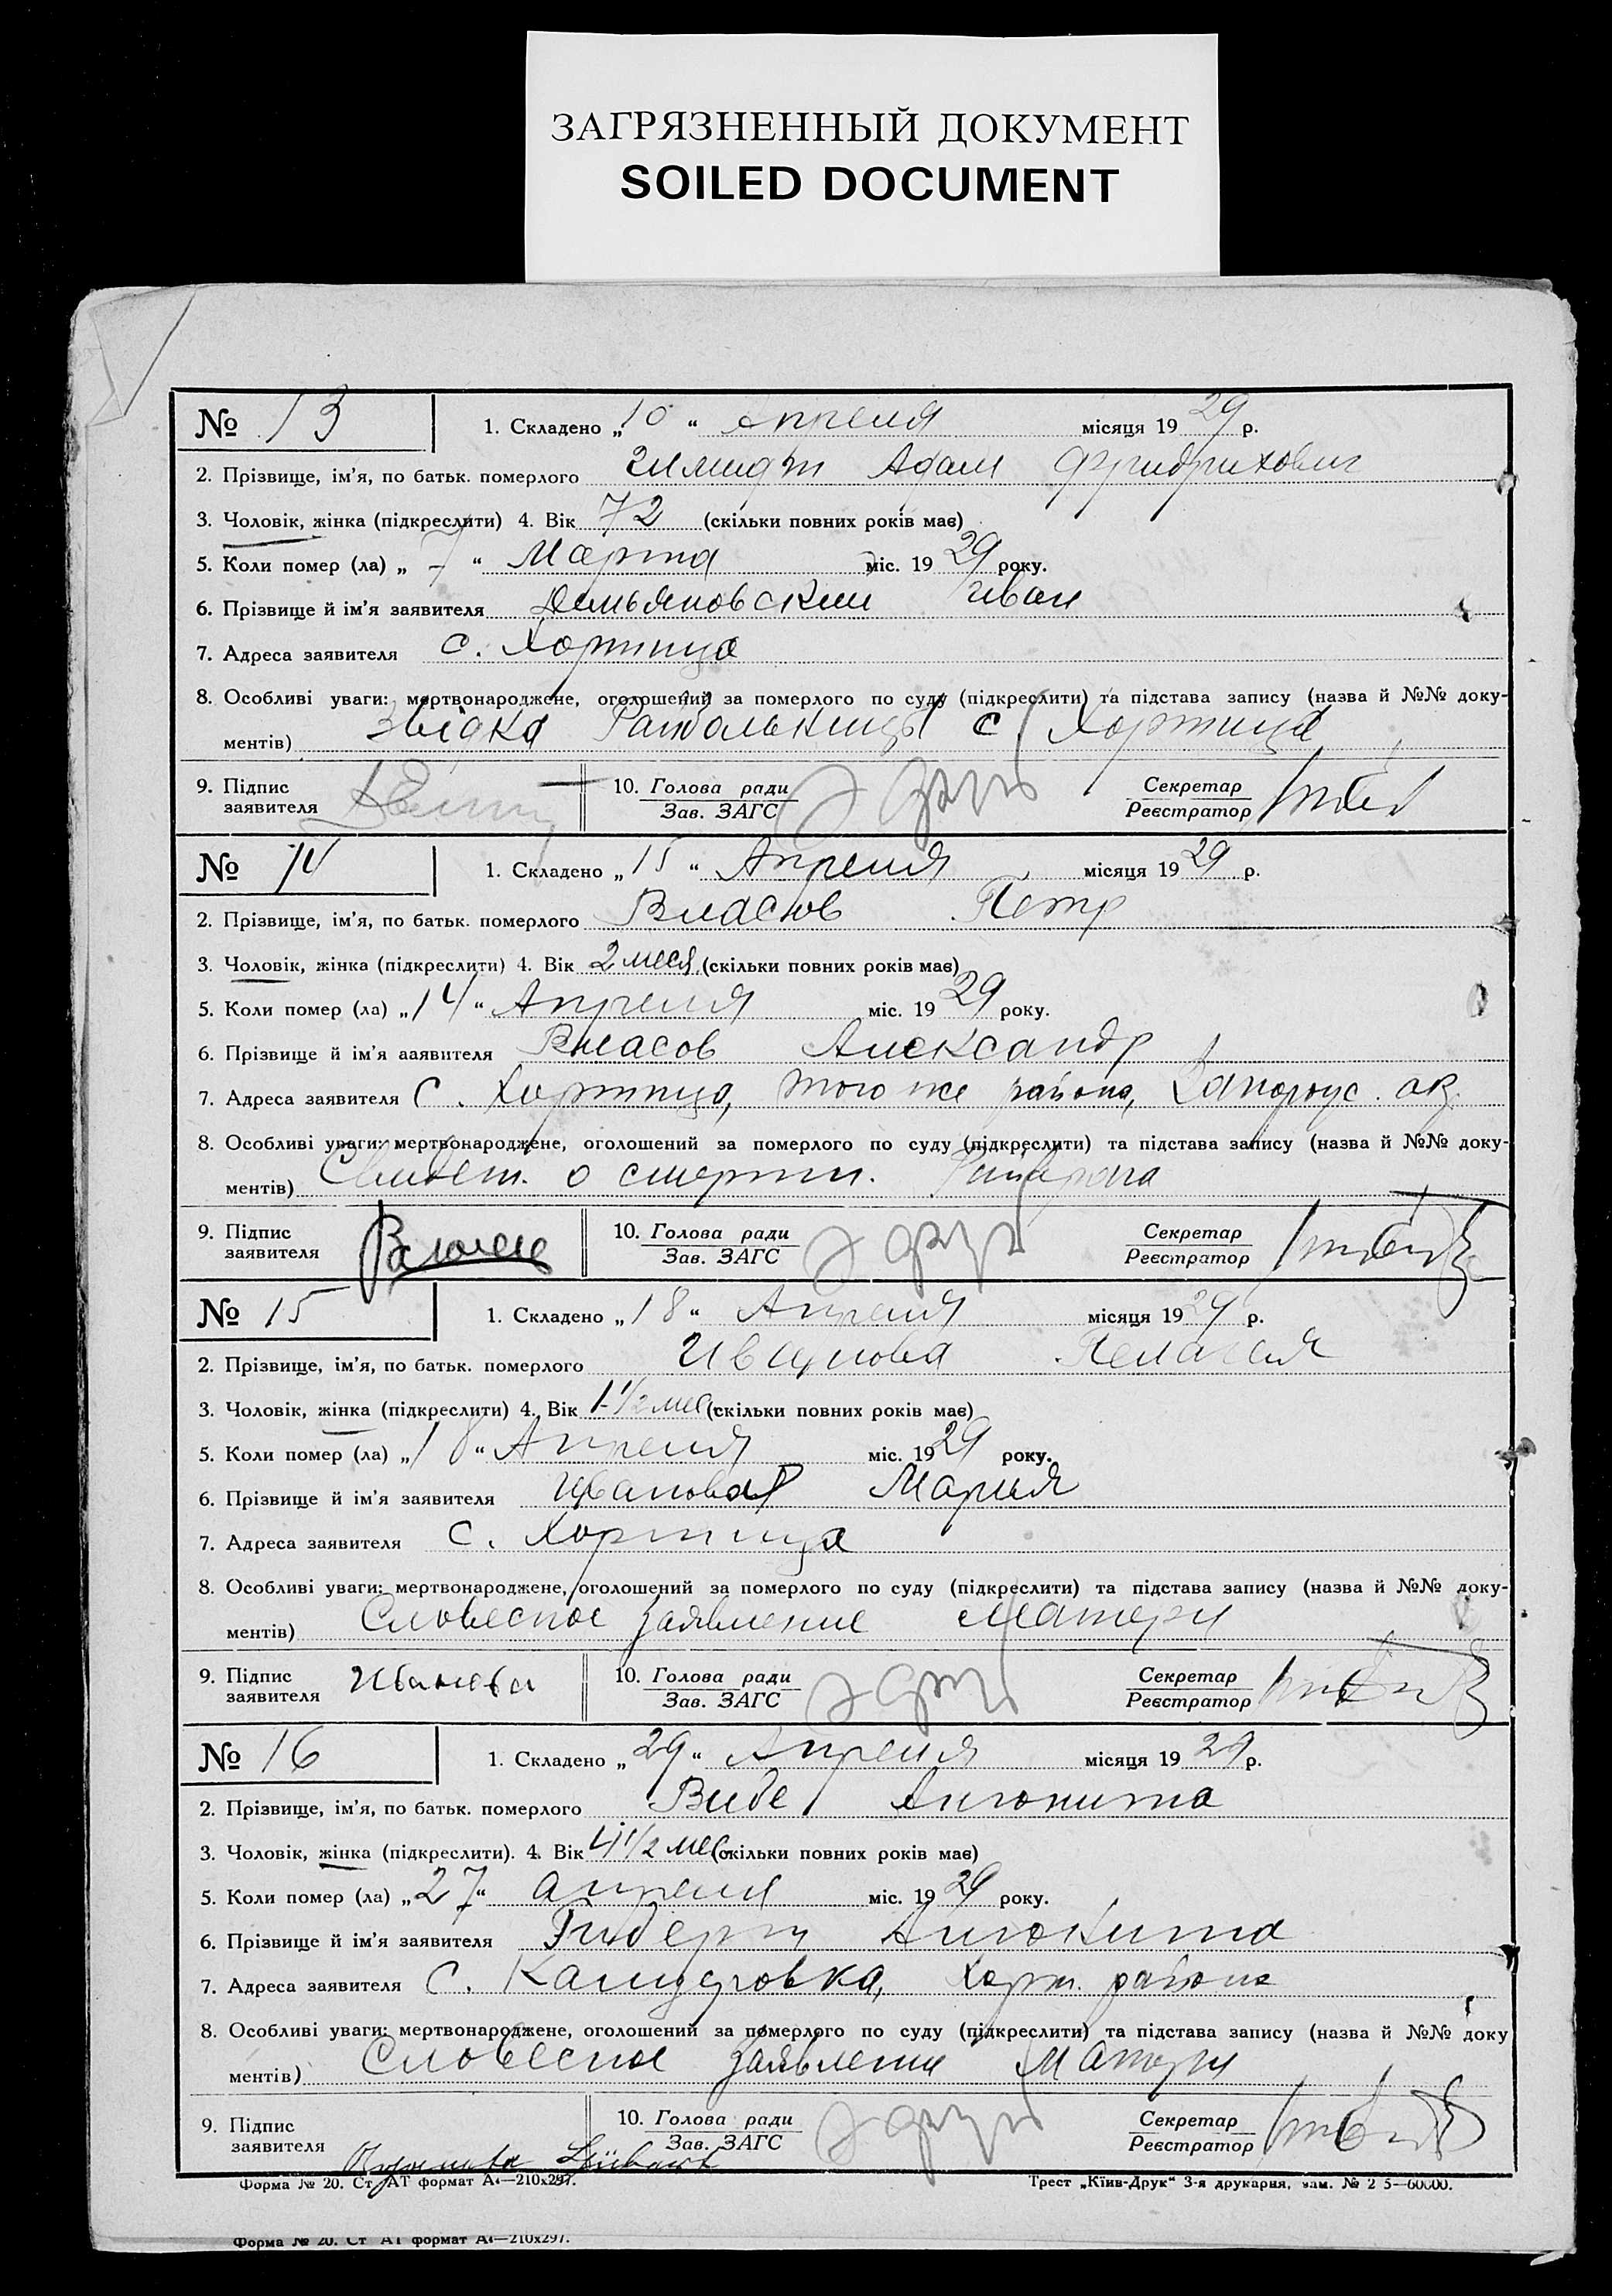 ЗАГРЯЗНЕННЫЙ ДОКУМЕНТ
SOILED DOCUMENT
№ 13 1. Складено „10“ Апреля місяця 1929 р.
2. Прізвище, ім’я, по батьк. померлого Адам Фридрихович
3. Чоловік, жінка (підкреслити) 4. Вік 72 (скільки повних років має)
5. Коли помер (ла) „7“ Марта міс. 1929 року.
6. Прізвище й ім’я заявителя Демьяновский Иван
7. Адреса заявителя с. Хортица
8. Особливі уваги: мертвонароджене, оголошений за померлого по суду (підкреслити) та підстава запису (назва й №№ доку-
ментів) Звідка Райбольницы с. Хортица
9. Підпис 10. Голова ради Секретар
заявителя Зав. ЗАГС Реєстратор
№ 14 1. Складено „15“ Апреля місяця 1929 р.
2. Прізвище, ім’я, по батьк. померлого Власов Петр
3. Чоловік, жінка (підкреслити) 4. Вік 2 меся. (скільки повних років має)
5. Коли помер (ла) „14“ Апреля міс. 1929 року.
6. Прізвище й ім’я ааявителя Власов Александр
7. Адреса заявителя с. Хортица, того же района, Запорож. ок.
8. Особливі уваги: мертвонароджене, оголошений за померлого по суду (підкреслити) та підстава запису (назва й №№ доку-
ментів) Свидет. о смерти.
9. Підпис 10. Голова ради Секретар
заявителя Зав. ЗАГС Реєстратор
№ 15 1. Складено „18“ Апреля місяця 1929 р.
2. Прізвище, ім’я, по батьк. померлого Иванова Пелагея
3. Чоловік, жінка (підкреслити) 4. Вік 1 1/2 мес (скільки повних років має)
5. Коли помер (ла) „18“ Апреля міс. 1929 року.
6. Прізвище й ім’я заявителя Иванова Мария
7. Адреса заявителя с. Хортица
8. Особливі уваги: мертвонароджене, оголошений за померлого по суду (підкреслити) та підстава запису (назва й №№ доку-
ментів) Словесное заявление матери
9. Підпис Иванова 10. Голова ради Секретар
заявителя Зав. ЗАГС Реєстратор
№ 16 1. Складено „29“ Апреля місяця 1929 р.
2. Прізвище, ім’я, по батьк. померлого Вибе
3. Чоловік, жінка (підкреслити). 4. Вік 4 1/2 мес (скільки повних років має)
5. Коли помер (ла) „27“ апреля міс. 1929 року.
6. Прізвище й ім’я заявителя
7. Адреса заявителя с. Канцеровка, Хорт. района
8. Особливі уваги: мертвонароджене, оголошений за померлого по суду (підкреслити) та підстава запису (назва й №№ доку
ментів) Словесное заявление матери
9. Підпис 10. Голова ради Секретар
заявителя Зав. ЗАГС Реєстратор
Форма № 20. Ст АТ формат А4—210х297. Трест „Київ-Друк“ 3-я друкарня, зам. № 2 5—60000.
Форма № 20. Ст АТ формат А4—210х297.